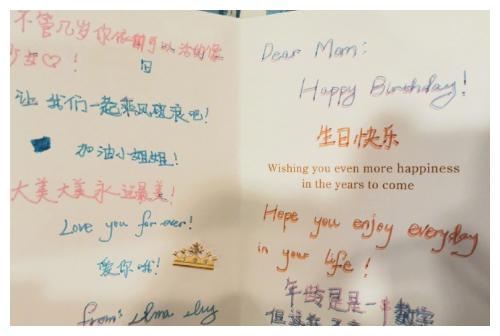 不管几岁你依旧可以活的像
少女♡!
让我们一起乘风破浪吧!
加油小姐姐!
大美大美永远最美!
Love you for ever!
爱你哦!
from:
Dear Mom:
Happy Birthday!
生日快乐
Wishing you even more happiness
in the years to come
Hope you enjoy everyday
in your life!
年龄是是一串数字
但